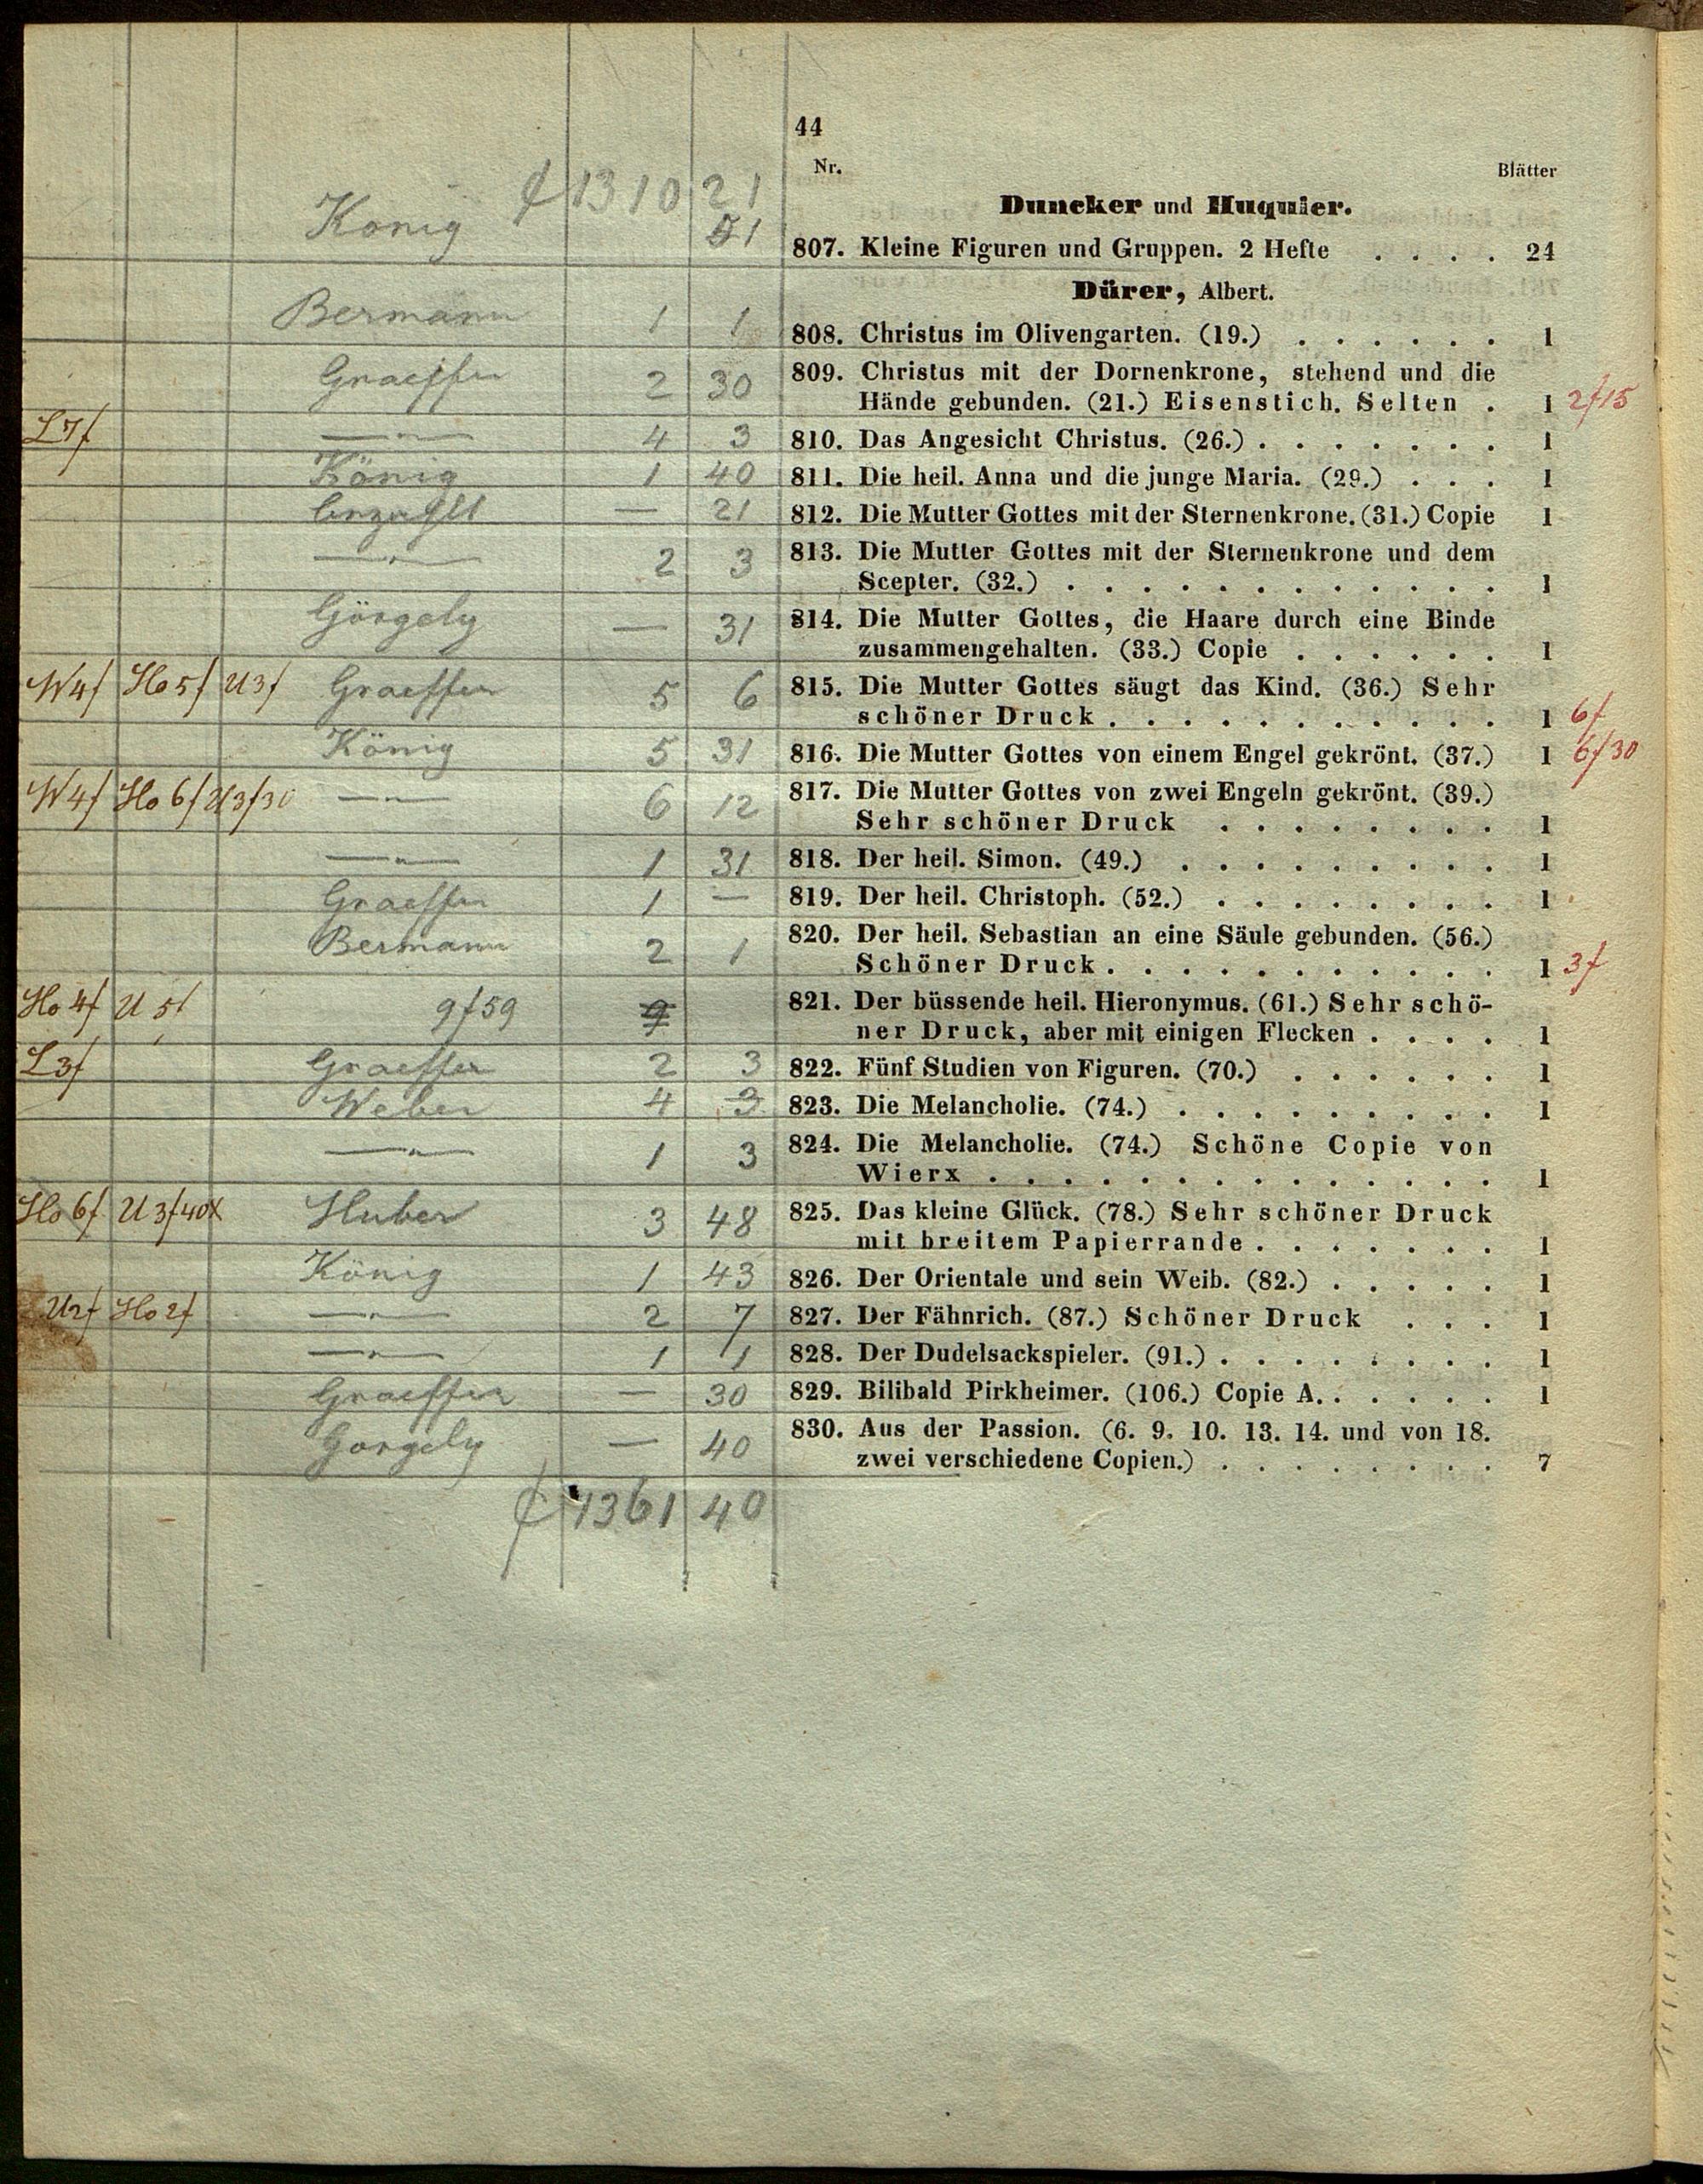 44
Nr. Blätter
₰ 1310 21
Duncker und Huquier.
Konig 51 807. Kleine Figuren und Gruppen. 2 Hefte . . . . 24
Dürer, Albert.
Bermann 1 1 808. Christus im Olivengarten. (19.) . . . . . . 1
Graeffer 2 30 809. Christus mit der Dornenkrone, stehend und die
Hände gebunden. (21.) Eisenstich. Selten . 1 2f15
L7f —"— 4 3 810. Das Angesicht Christus. (26.) . . . . . . . 1
König 1 40 811. Die heil. Anna und die junge Maria. (29.) . . . 1
— 21 812. Die Mutter Gottes mit der Sternenkrone. (31.) Copie 1
—"— 2 3 813. Die Mutter Gottes mit der Sternenkrone und dem
Scepter. (32.) . . . . . . . . . . . . 1
Görgely — 31 814. Die Mutter Gottes, die Haare durch eine Binde
zusammengehalten. (33.) Copie . . . . . . 1
W4f Ho5f U3f Graeffer 5 6 815. Die Mutter Gottes säugt das Kind. (36.) Sehr
schöner Druck . . . . . . . . . . . 1 6f
König 5 31 816. Die Mutter Gottes von einem Engel gekrönt. (37.) 1 6f30
W4f Ho6f U3f30 —"— 6 12 817. Die Mutter Gottes von zwei Engeln gekrönt. (39.)
Sehr schöner Druck . . . . . . . . 1
—"— 1 31 818. Der heil. Simon. (49.) . . . . . . . . . 1
Graeffer 1 — 819. Der heil. Christoph. (52.) . . . . . . . . 1
Bermann 2 1 820. Der heil. Sebastian an eine Säule gebunden. (56.)
Schöner Druck . . . . . . . . . . . 1 3f
Ho4f U5f 9f59 9 821. Der büssende heil. Hieronymus. (61.) Sehr schö-
ner Druck, aber mit einigen Flecken . . . . 1
L3f Graeffer 2 3 822. Fünf Studien von Figuren. (70.) . . . . . . 1
Weber 4 3 823. Die Melancholie. (74.) . . . . . . . . . 1
—"— 1 3 824. Die Melancholie. (74.) Schöne Copie von
Wierx . . . . . . . . . . . . . . 1
Ho6f U3f40x Huber 3 48 825. Das kleine Glück. (78.) Sehr schöner Druck
mit breitem Papierrande . . . . . . . 1
König 1 43 826. Der Orientale und sein Weib. (82.) . . . . . 1
U2f Ho2f —"— 2 7 827. Der Fähnrich. (87.) Schöner Druck . . . 1
—"— 1 1 828. Der Dudelsackspieler. (91.) . . . . . . . . 1
Graeffer — 30 829. Bilibald Pirkheimer. (106.) Copie A. . . . . . 1
Gorgely — 40 830. Aus der Passion. (6. 9. 10. 13. 14. und von 18.
zwei verschiedene Copien.) . . . . . . . . 7
₰ 1361 40